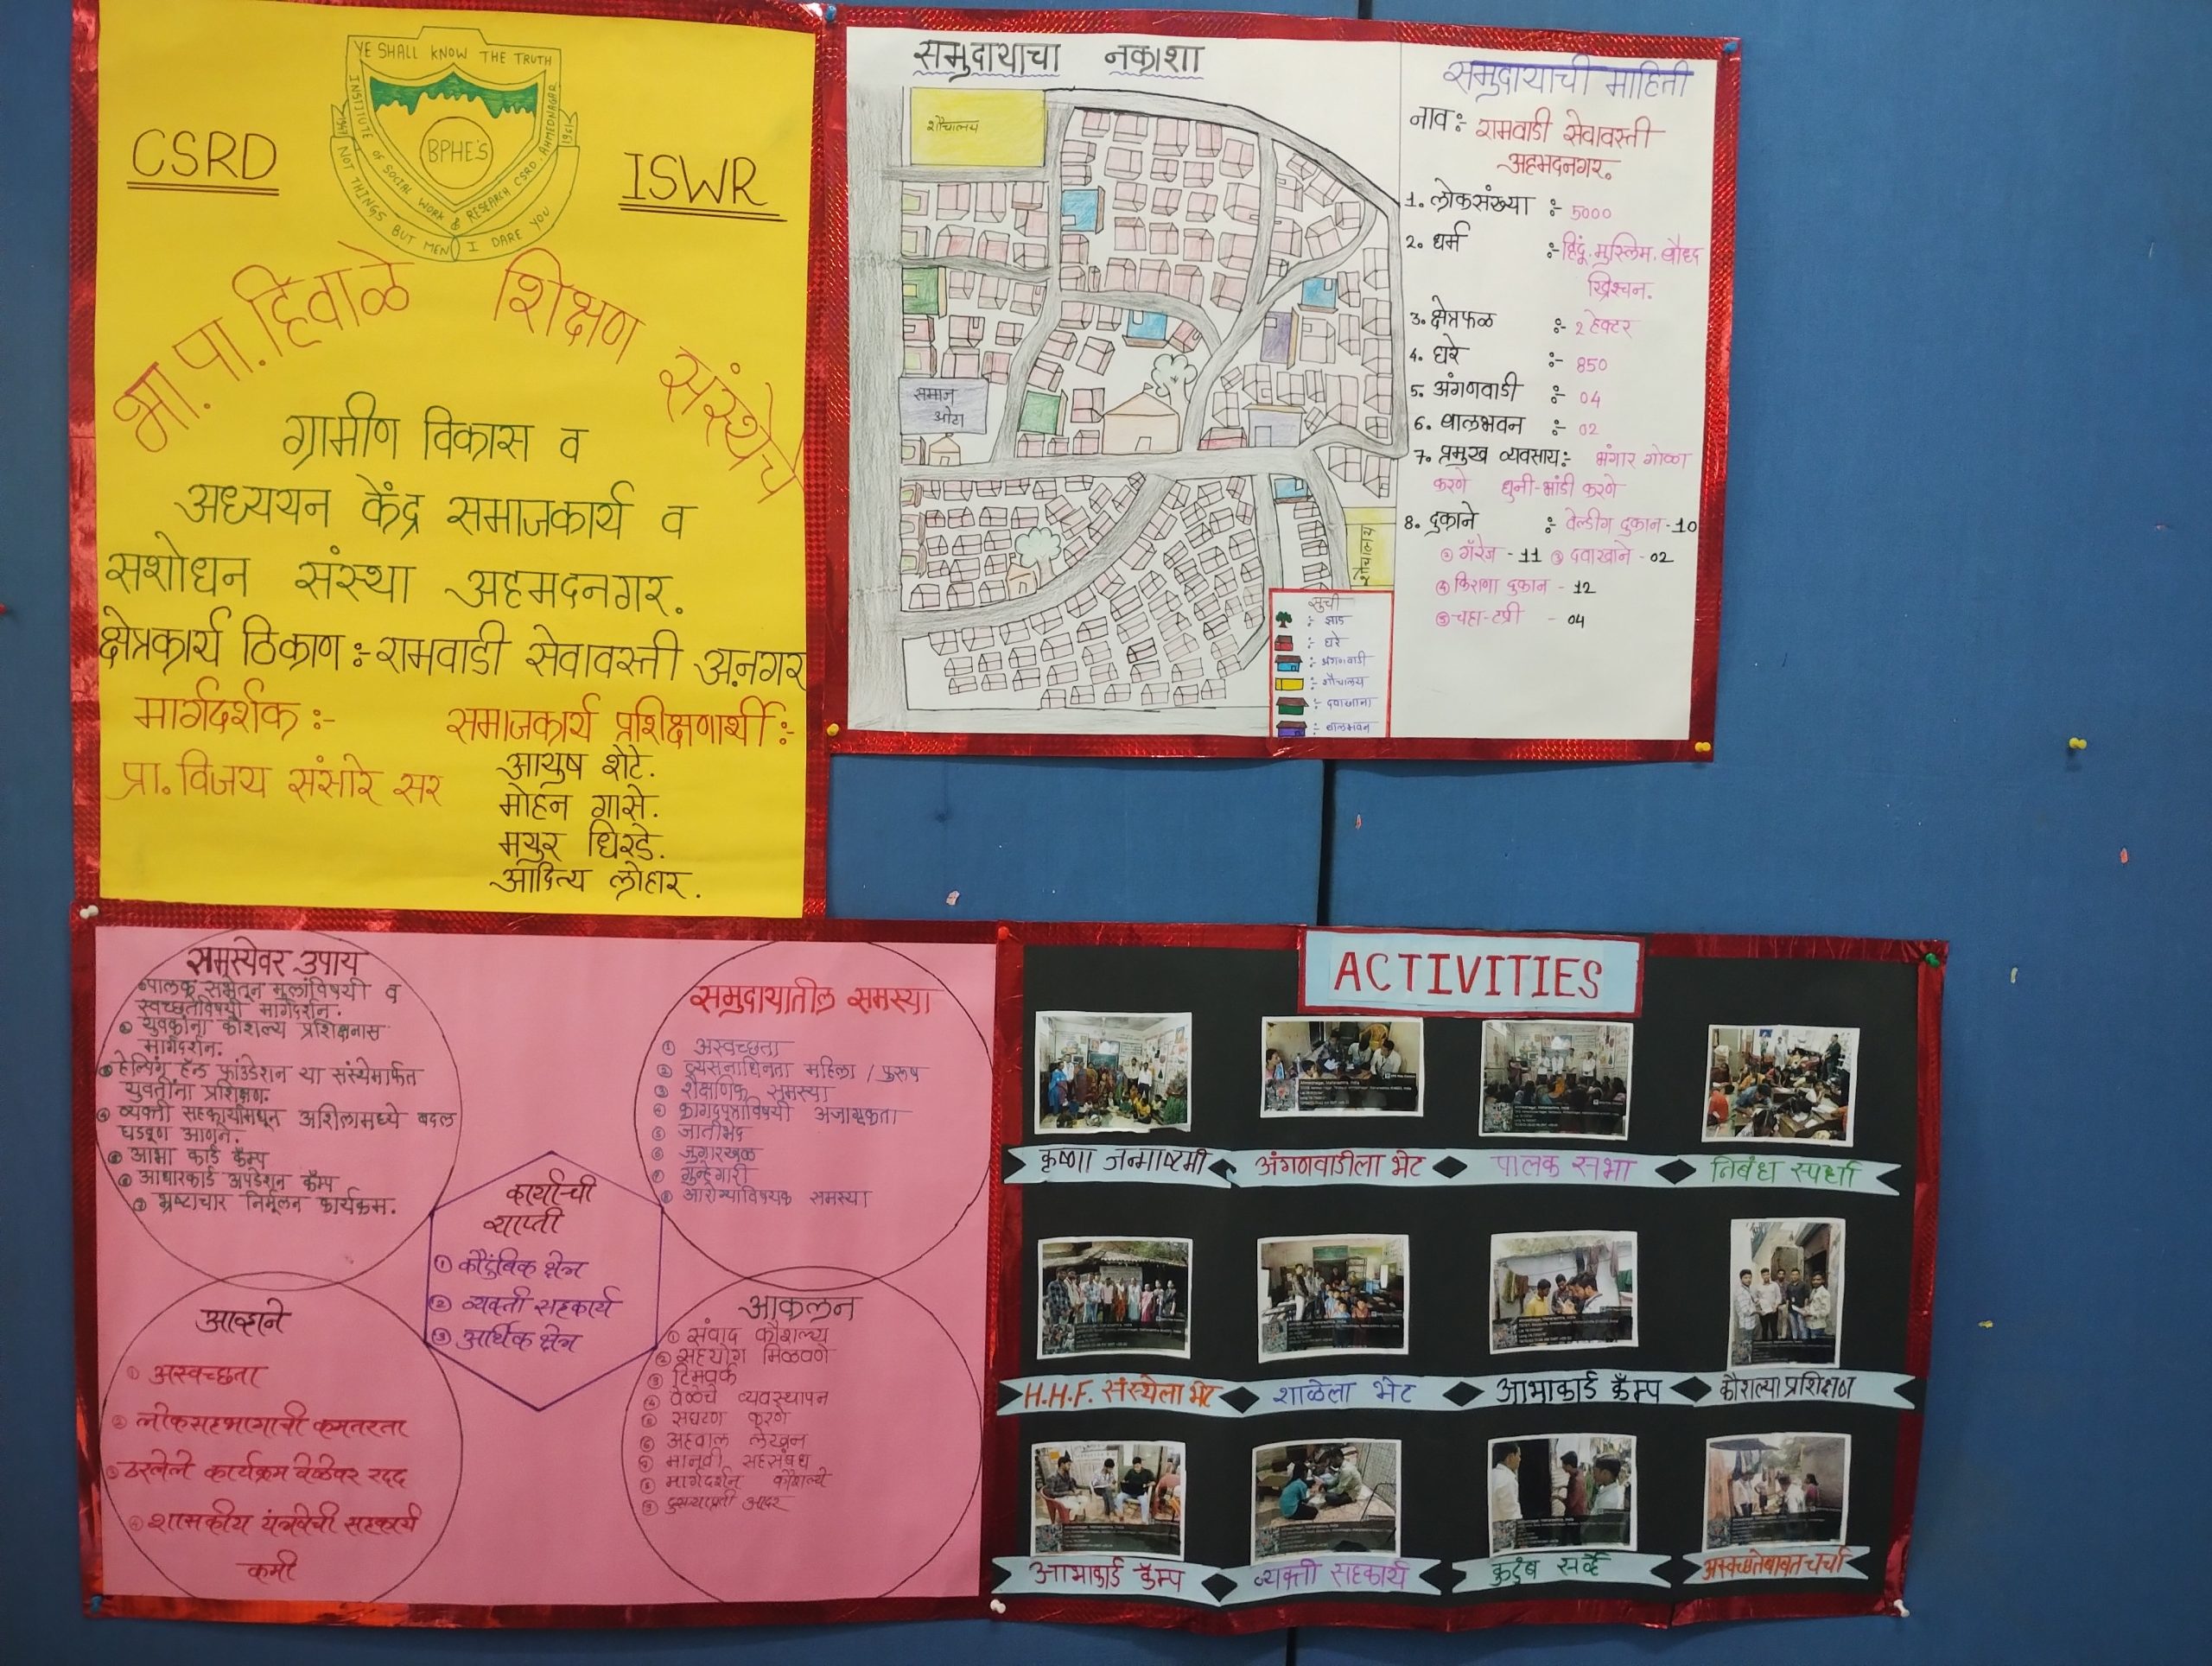 YE SHALL KNOW THE TRUTH
INSTITUTE OF SOCIAL WORK & RESEARCH CSRD, AHMEDNAGAR
BPHE'S
1947
1961
NOT THINGS BUT MEN I DARE YOU
CSRD
ISWR
भा.पा.हिवाळे शिक्षण संस्थेचे
ग्रामीण विकास व
अध्ययन केंद्र समाजकार्य व
सशोधन संस्था अहमदनगर.
क्षेत्रकार्य ठिकाण:-रामवाडी सेवावस्ती अ.नगर
मार्गदर्शक:-
प्रा. विजय संसारे सर
समाजकार्य प्रशिक्षणार्थी:-
आयुष शेटे.
मोहन गासे.
मयुर धिरडे.
आदित्य लोहार.
समुदायाचा नकाशा
शौचालय
समाज
ओटा
शौचालय
सुची
:- झाड
:- घरे
:- अंगणवाडी
:- शौचालय
:- दवाखाना
:- बालभवन
समुदायाची माहिती
नाव:- रामवाडी सेवावस्ती
अहमदनगर.
1. लोकसंख्या :- 5000
2. धर्म :- हिंदू. मुस्लिम. बौध्द
ख्रिश्चन.
3. क्षेत्रफळ :- 2 हेक्टर
4. घरे :- 850
5. अंगणवाडी :- 04
6. बालभवन :- 02
7. प्रमुख व्यवसाय:- भंगार गोळा
करणे धुनी-भांडी करणे
8. दुकाने :- वेल्डींग दुकान -10
② गॅरेज - 11 ③ दवाखाने - 02
④ किराणा दुकान - 12
⑤ चहा-टप्री - 04
समस्येवर उपाय
पालक सभेतून मुलांविषयी व
स्वच्छतेविषयी मार्गदर्शन.
② युवकांना कौशल्य प्रशिक्षनास
मार्गदर्शन.
③ हेल्पिंग हॅन्ड फाउंडेशन या संस्थेमार्फत
युवतींना प्रशिक्षण.
④ व्यक्ती सहकार्यामधून अशिलामध्ये बदल
घडवूण आणने.
⑤ आभा कार्ड कॅम्प
⑥ आधारकार्ड अपडेशन कॅम्प
⑦ भ्रष्टाचार निर्मूलन कार्यक्रम.
समुदायातील समस्या
① अस्वच्छता
② व्यसनाधिनता महिला / पुरूष
③ शैक्षणिक समस्या
④ कागदपत्राविषयी अजागृकता
⑤ जातीभेद
⑥ जुगारखळ
⑦ गुन्हेगारी
⑧ आरोग्याविषयक समस्या
कार्याची
व्याप्ती
① कौटुंबिक क्षेत्र
② व्यक्ती सहकार्य
③ आर्थिक क्षेत्र
आव्हाने
① अस्वच्छता
② लोकसहभागाची कमतरता
③ ठरलेले कार्यक्रम वेळेवर रद्द
④ शासकीय यंत्रणेची सहकार्य
कमी
आकलन
① संवाद कौशल्य
② सहयोग मिळवणे
③ टिमवर्क
④ वेळेचे व्यवस्थापन
⑤ संघटण करणे
⑥ अहवाल लेखन
⑦ मानवी सहसंबंध
⑧ मार्गदर्शन कौशल्ये
⑨ दुसऱ्याप्रती आदर
ACTIVITIES
कृष्णा जन्माष्टमी
अंगणवाडीला भेट
पालक सभा
निबंध स्पर्धा
H.H.F. संस्थेला भेट
शाळेला भेट
आभाकार्ड कॅम्प
कौशल्या प्रशिक्षण
आभाकार्ड कॅम्प
व्यक्ती सहकार्य
कुटुंब सर्व्हे
अस्वच्छतेबाबत चर्चा